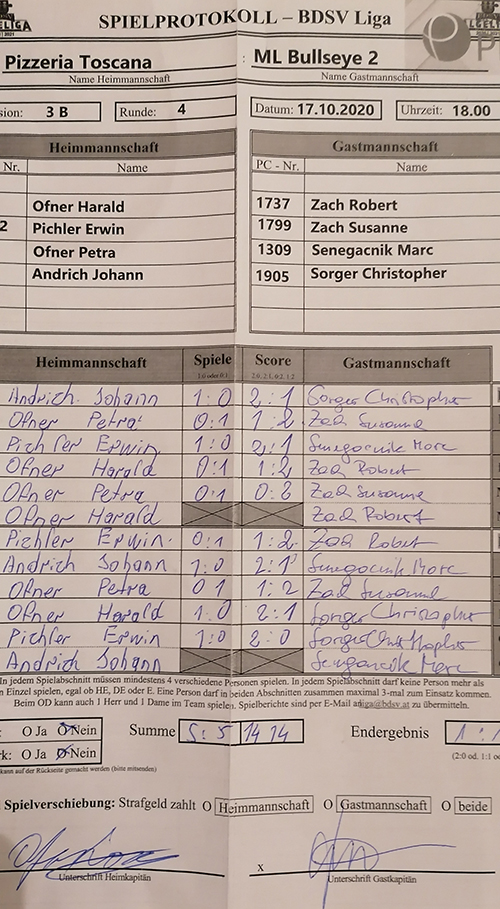 SPIELPROTOKOLL – BDSV Liga
Pizzeria Toscana : ML Bullseye 2
Name Heimmannschaft Name Gastmannschaft
sion: 3 B Runde: 4 Datum: 17.10.2020 Uhrzeit: 18.00
Heimmannschaft Gastmannschaft
Nr. Name PC - Nr. Name
Ofner Harald 1737 Zach Robert
2 Pichler Erwin 1799 Zach Susanne
Ofner Petra 1309 Senegacnik Marc
Andrich Johann 1905 Sorger Christopher
Heimmannschaft Spiele Score Gastmannschaft
1:0 oder 0:1 2:0, 2:1, 0:2, 1:2
Andrich Johann 1:0 2:1 Sorger Christopher
Ofner Petra 0:1 1:2 Zach Susanne
Pichler Erwin 1:0 2:1 Senegacnik Marc
Ofner Harald 0:1 1:2 Zach Robert
Ofner Petra 0:1 0:2 Zach Susanne
Ofner Harald Zach Robert
Pichler Erwin 0:1 1:2 Zach Robert
Andrich Johann 1:0 2:1 Senegacnik Marc
Ofner Petra 0 1 1:2 Zach Susanne
Ofner Harald 1:0 2:1 Sorger Christopher
Pichler Erwin 1:0 2:0 Sorger Christopher
Andrich Johann Senegacnik Marc
In jedem Spielabschnitt müssen mindestens 4 verschiedene Personen spielen. In jedem Spielabschnitt darf keine Person mehr als
n Einzel spielen, egal ob HE, DE oder E. Eine Person darf in beiden Abschnitten zusammen maximal 3-mal zum Einsatz kommen.
Beim OD kann auch 1 Herr und 1 Dame im Team spielen. Spielberichte sind per E-Mail an liga@bdsv.at zu übermitteln.
: O Ja O Nein Summe 5:5 14 14 Endergebnis 1:1
rk: O Ja O Nein (2:0 od. 1:1 o
kann auf der Rückseite gemacht werden (bitte mitsenden)
Spielverschiebung: Strafgeld zahlt O Heimmannschaft O Gastmannschaft O beide
x
Unterschrift Heimkapitän Unterschrift Gastkapitän